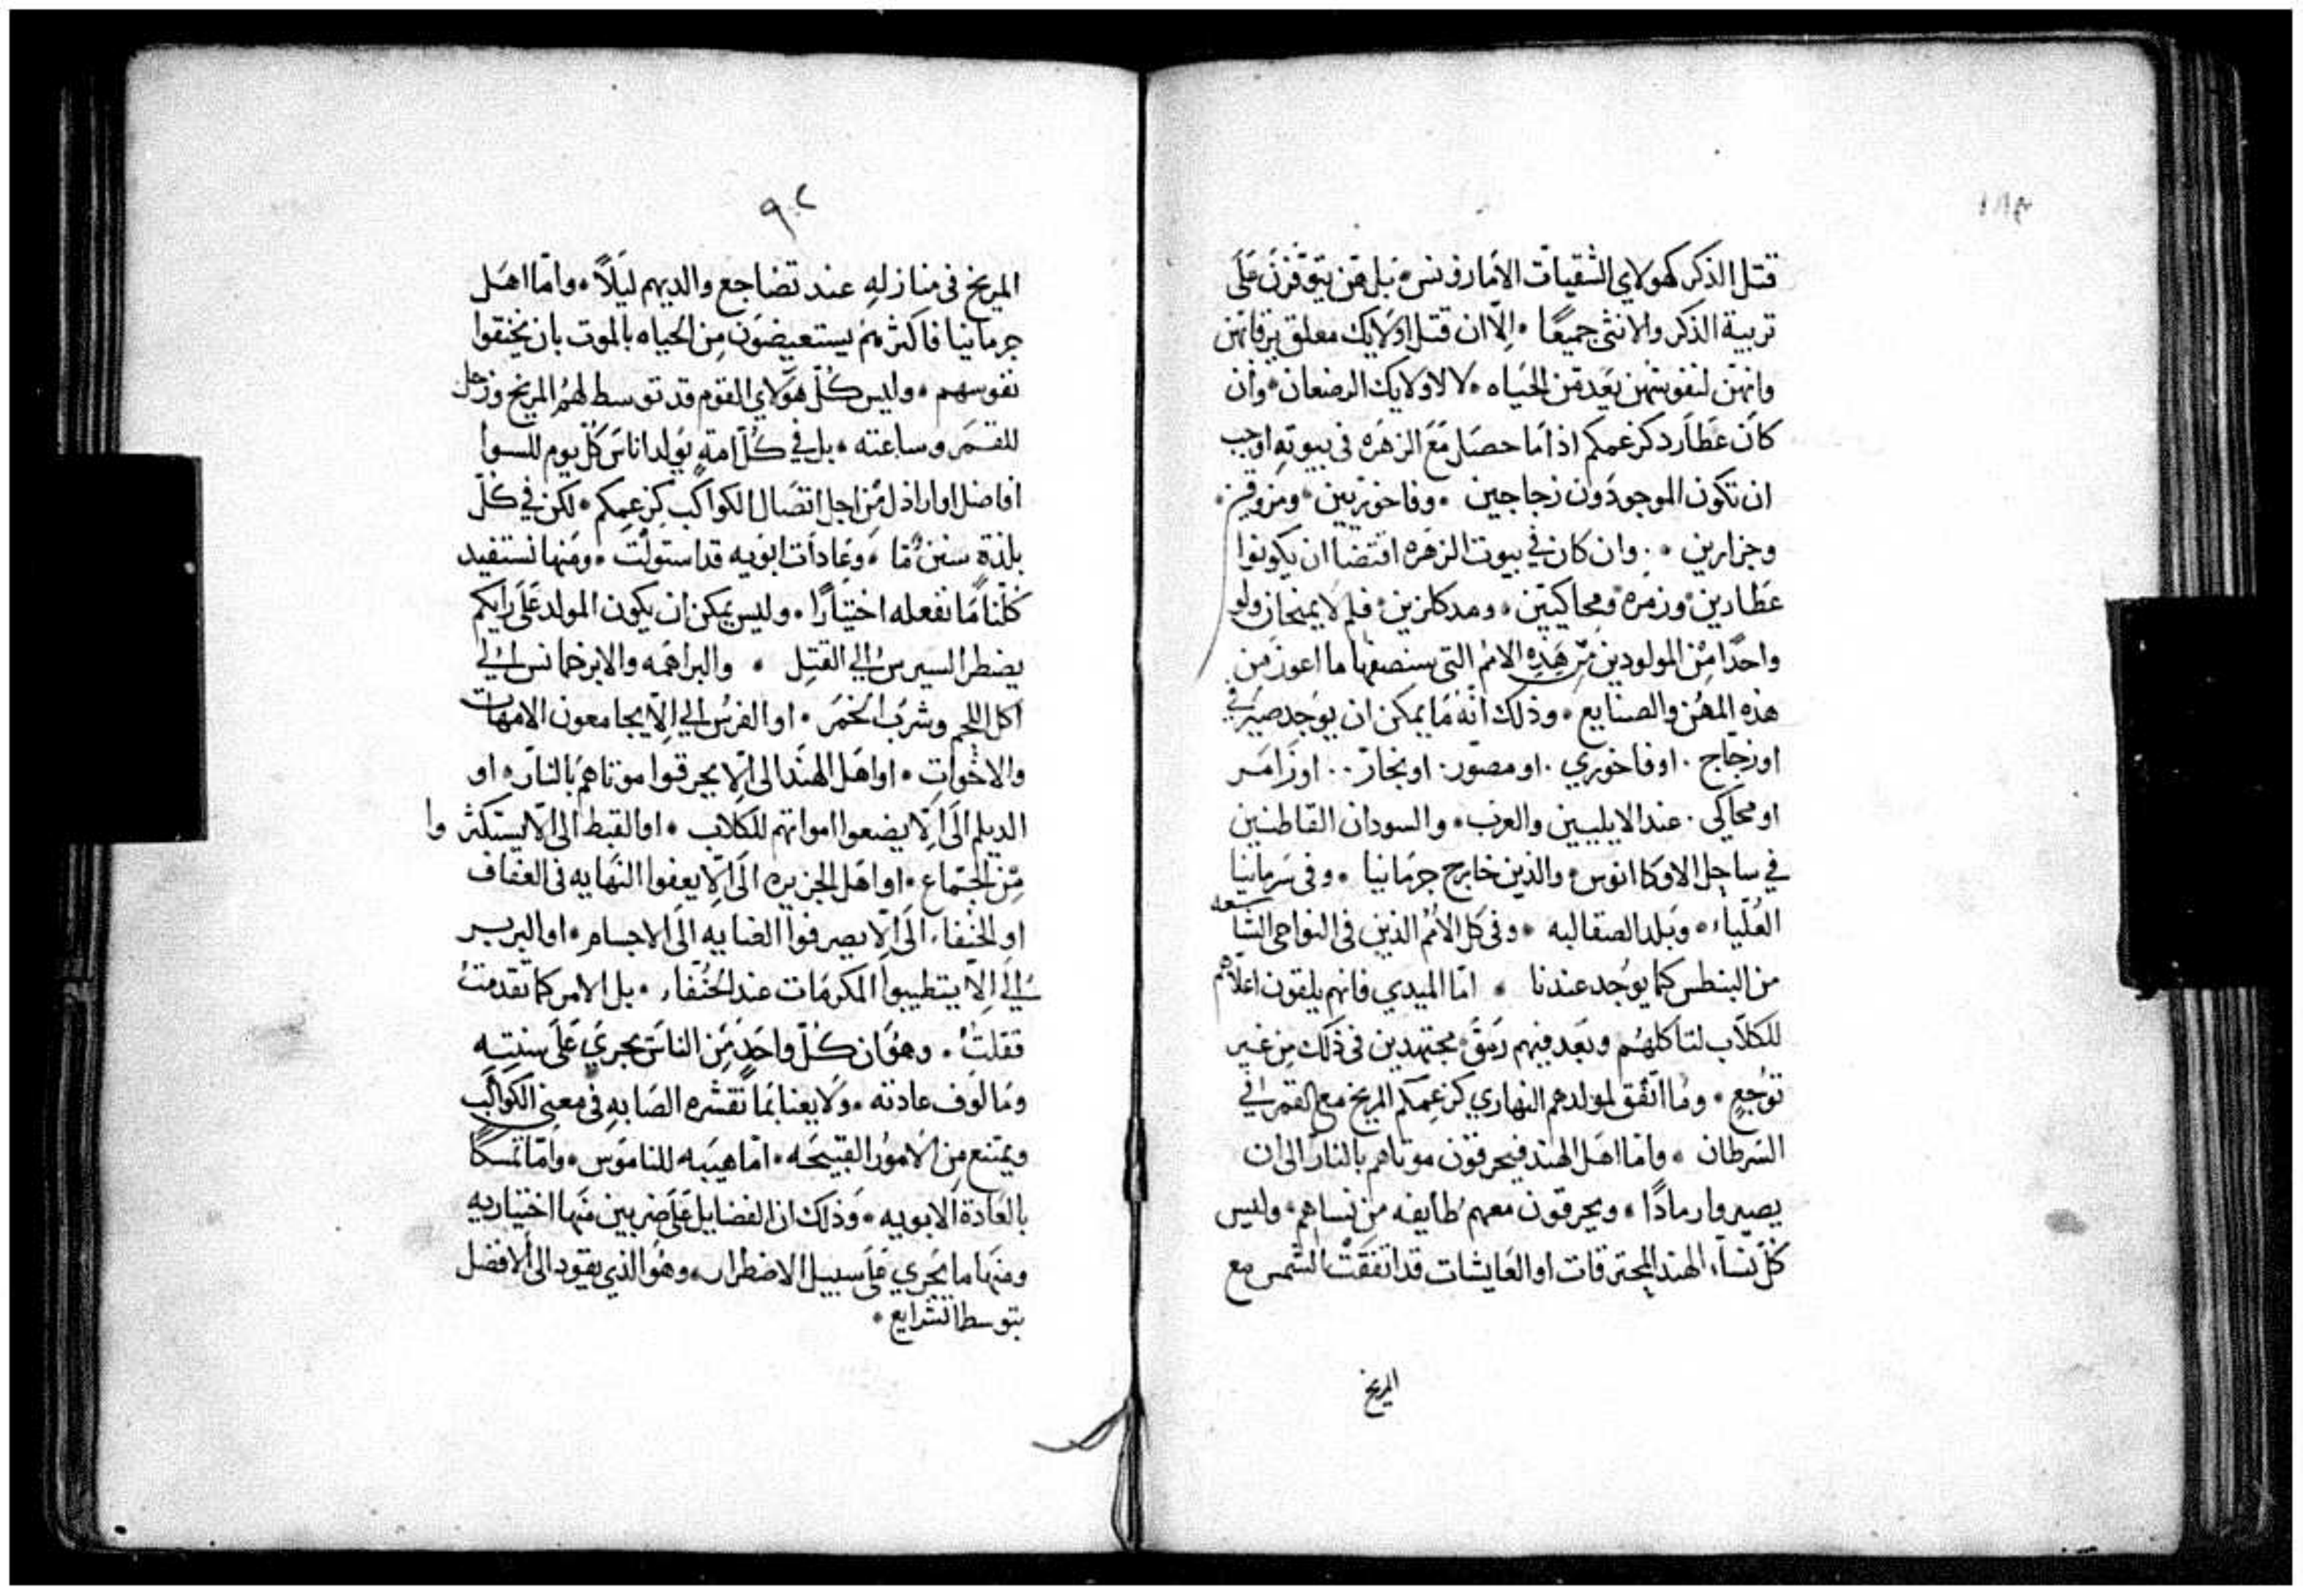 قتل الذكر كهولاي الشقيات الامارونس بل هن يتوفرن على
تربية الذكر والانثى جميعًا • اِلّا ان قتل اولايك معلق بزفانهن
وانهن لنفوسهن بعد من الحياه • لا لاولايك الرضعان • وان
كان عطارد كزعمكم اذا ما حصل مع الزهره في بيوته اوجب
ان تكون الموجودون زجاجين • وفاخوريين • ومزوقين •
وجزارين • وان كان في بيوت الزهره اقتضا ان يكونوا
عطارين • وزمره • ومحاكيين • ومدكلزين • فلم لا يمنحان ولو
واحدًا من المولودين من هذه الامم التي سنصفها ما اعوز من
هذه المهن والصنايع • وذلك انه ما يمكن ان يوجد صيرفي
او زجاج • او فاخوري • او مصور • او نجار • او زامر
او محاكي • عند الايليين والعرب • والسودان القاطنين
في ساحل الاوكاانوس • والذين خارج جرمانيا • وفي سرمانيا
العُليا • وبلد الصقالبه • وفي كل الامم الذين في النواحي الشاسعه
من البنطس كما يوجد عندنا • امّا الميدي فانهم يلقون اعلآهم
للكلاب لتاكلهم وبعد فيهم رمق • مجتهدين في ذلك من غير
توجعٍ • وما اتفق لمولدهم النهاري كزعمكم المريخ مع القمر في
السرطان • وامّا اهل الهند فيحرقون موتاهم بالنار الى ان
يصيروا رمادًا • ويحرقون معهم طايفه من نساهم • وليس
كل نسآء الهند المحترقات او العايشات قد اتفقت الشمس مع
المريخ
٩٢
المريخ في منازله عند تضاجع والديهم ليلاً • وامّا اهل
جرمانيا فاكثرهم يستعيضون من الحياه بالموت بان يخنقوا
نفوسهم • وليس كلّ هولاي القوم قد توسط لهم المريخ وزحل
للقمر وساعته • بل في كلّ امةٍ يولد اناس كل يوم للسوا
افاضل او اراذل من اجل اتصال الكواكب كزعمكم • لكن في كلّ
بلدة سنن ما • وعادات ابويه قد استولت • ومنها نستفيد
كلّنا ما نفعله اختيارًا • وليس يمكن ان يكون المولد على رايكم
يضطر السيرس الى القتل • والبراهمه والابرخمانس الى
اكل اللحم وشرب الخمر • او الفرس الى اِلّا يجامعون الامهات
والاخوات • او اهل الهند الى اِلّا يحرقوا موتاهم بالنار • او
الديلم الى اِلّا يضعوا امواتهم للكلاب • او القبط الى اِلّا يستكثروا
من الجماع • او اهل الجزيره الى اِلّا يعفوا النهايه في العفاف
او الحنفاء الى اِلّا يصرفوا العنايه الى الاجسام • او البربر
الى اِلّا يتطيبوا المكرمات عند الحنفاء • بل الامر كما تقدمت
فقلت • وهو ان كلّ واحد من الناس يجري على سنته
ومالوف عادته • ولا يعنا بما تقشره الصابه في معنى الكواكب
ويمتنع من الامور القبيحه • امّا هيبه للناموس • وامّا تمسكًا
بالعادة الابويه • وذلك ان الفضايل على ضربين منها اختياريه
ومنها ما يجري على سبيل الاضطرار • وهو الذي يقود الى الافضل
بتوسط الشرايع •